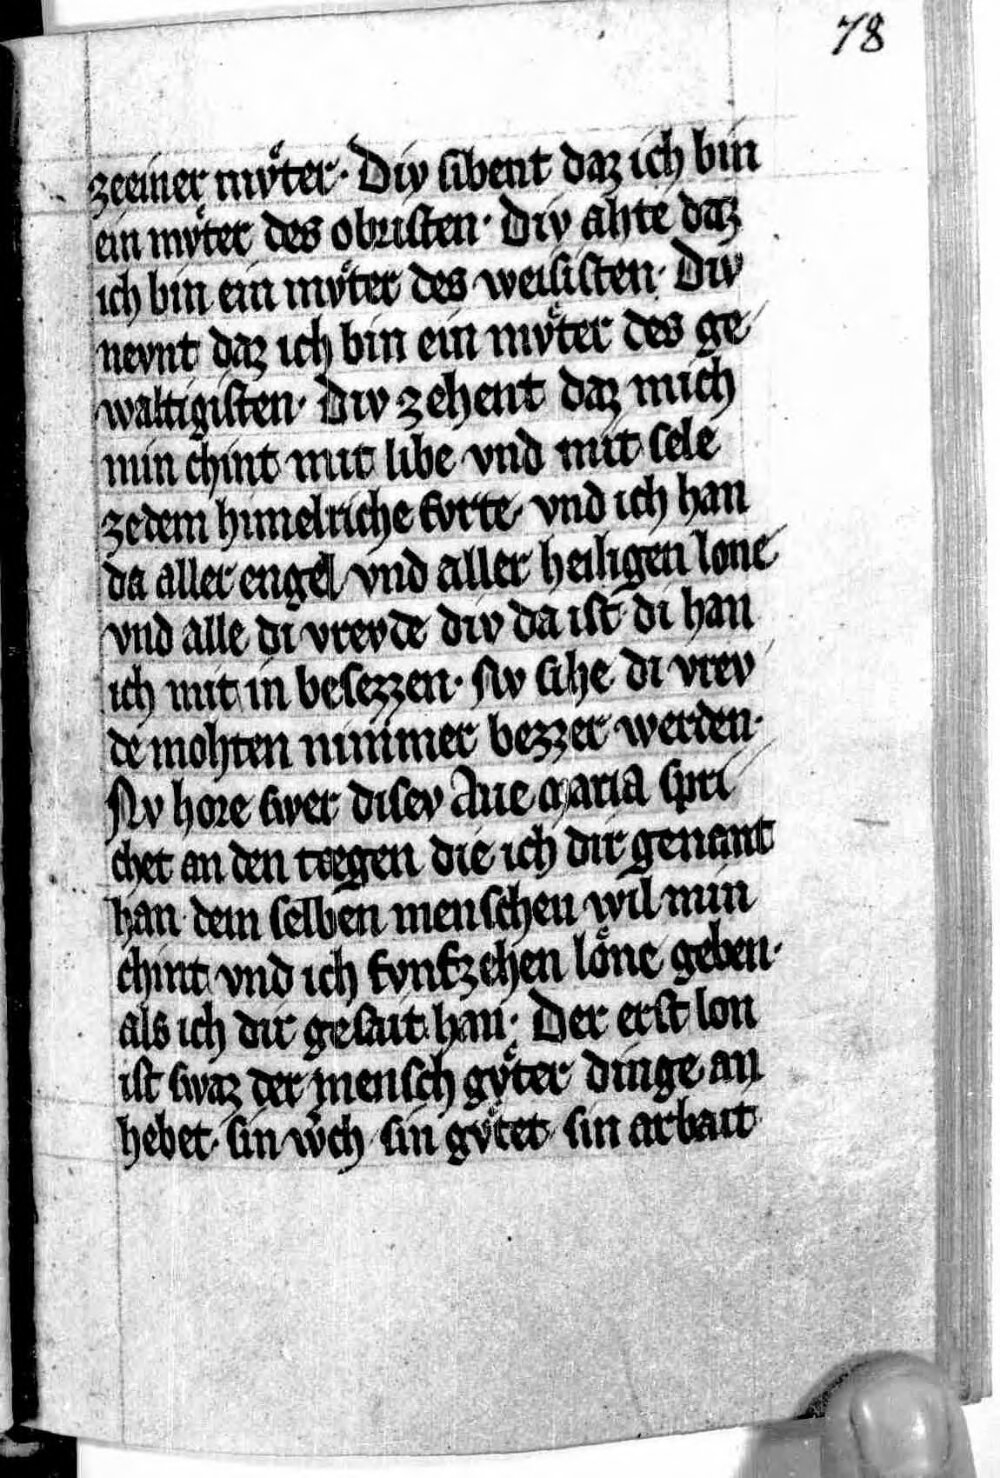 78
zeeiner mvͦter· Div sibent daz ich bin
ein mvͦter des obristen· Div ahte daz
ich bin ein mvͦter des weisisten· Div
nevnt daz ich bin ein mvͦter des ge
waltigisten· Div zehent daz mich
min chint mit libe vnd mit sele
zedem himelriche fvrte· vnd ich han
da aller engel vnd aller heiligen lone
vnd alle di vrevde div da ist di han
ich mit in besezzen· Nv sihe di vrev
de mohten nimmer bezzer werden·
Nv hore swer disev Aue maria spri
chet an den tægen die ich dir genant
han dem selben menschen wil min
chint vnd ich fvnfzehen loͤne geben·
als ich dir gesait han· Der erst lon
ist swaz der mensch gvͦter dinge an
hebet· sin wͦch sin gvͤtet sin arbait